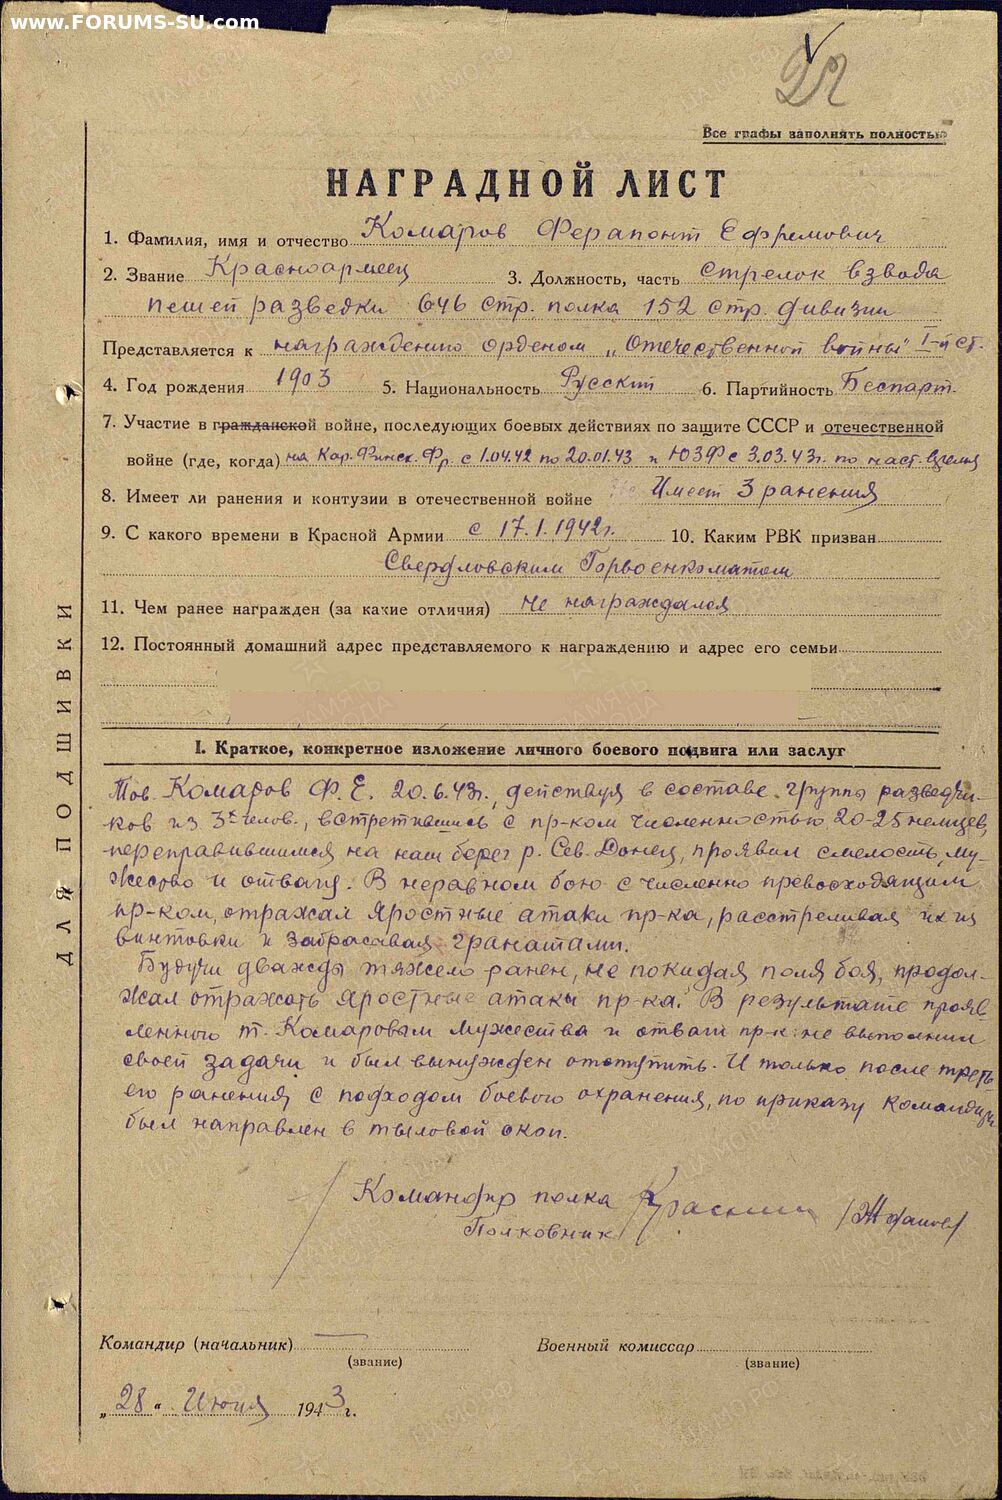 www.FORUMS-SU.com
Все графы заполнять полностью
НАГРАДНОЙ ЛИСТ
1. Фамилия, имя и отчество Комаров Ферапонт Ефремович
2. Звание Красноармеец 3. Должность, часть стрелок взвода
пешей разведки 646 стр. полка 152 стр. дивизии
Представляется к награждению орденом „Отечественной войны" I-й ст.
4. Год рождения 1903 5. Национальность Русский 6. Партийность Беспарт.
7. Участие в гражданской войне, последующих боевых действиях по защите СССР и отечественной
войне (где, когда) на Кар. Финск. Фр. с 1.04.42 по 20.01.43 и ЮЗФ с 3.03.43г. по наст. время
8. Имеет ли ранения и контузии в отечественной войне Имеет 3 ранения
9. С какого времени в Красной Армии с 17.1.1942г. 10. Каким РВК призван
Свердловским Горвоенкоматом
11. Чем ранее награжден (за какие отличия) не награждался
12. Постоянный домашний адрес представляемого к награждению и адрес его семьи
I. Краткое, конкретное изложение личного боевого подвига или заслуг
Тов. Комаров Ф. Е. 20.6.43г., действуя в составе группы разведчи-
ков из 3х челов., встретившись с пр-ком численностью 20-25 немцев,
переправившимся на наш берег р. Сев. Донец, проявил смелость, му-
жество и отвагу. В неравном бою с численно превосходящим
пр-ком, отражал яростные атаки пр-ка, расстреливая их из
винтовки и забрасывая гранатами.
Будучи дважды тяжело ранен, не покидая поля боя, продол-
жал отражать яростные атаки пр-ка. В результате прояв-
ленного т. Комаровым мужества и отваги пр-к не выполнил
своей задачи и был вынужден отступить. И только после треть
его ранения, с подходом боевого охранения, по приказу командира
был направлен в тыловой окоп.
Командир полка
Полковник
Командир (начальник) Военный комиссар
(звание) (звание)
„28" Июня 1943 г.
ДЛЯ ПОДШИВКИ